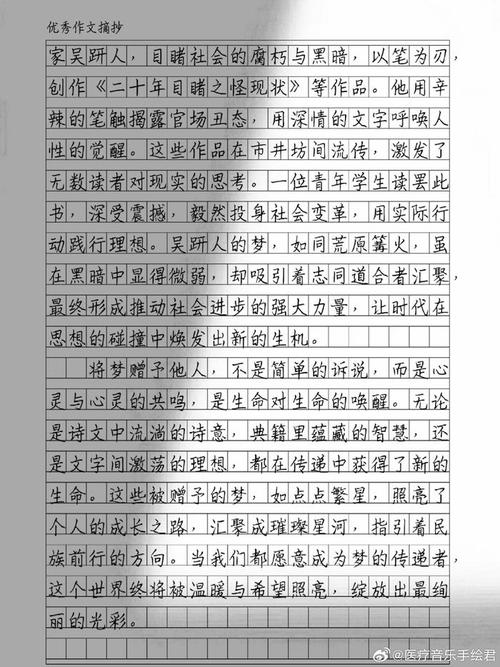 优秀作文摘抄
家吴趼人，目睹社会的腐朽与黑暗，以笔为刃，
创作《二十年目睹之怪现状》等作品。他用辛
辣的笔触揭露官场丑态，用深情的文字呼唤人
性的觉醒。这些作品在市井坊间流传，激发了
无数读者对现实的思考。一位青年学生读罢此
书，深受震撼，毅然投身社会变革，用实际行
动践行理想。吴趼人的梦，如同荒原篝火，虽
在黑暗中显得微弱，却吸引着志同道合者汇聚，
最终形成推动社会进步的强大力量，让时代在
思想的碰撞中焕发出新的生机。
将梦赠予他人，不是简单的诉说，而是心
灵与心灵的共鸣，是生命对生命的唤醒。无论
是诗文中流淌的诗意，典籍里蕴藏的智慧，还
是文字间激荡的理想，都在传递中获得了新的
生命。这些被赠予的梦，如点点繁星，照亮了
个人的成长之路，汇聚成璀璨星河，指引着民
族前行的方向。当我们都愿意成为梦的传递者，
这个世界终将被温暖与希望照亮，绽放出最绚
丽的光彩。
@医疗音乐手绘君